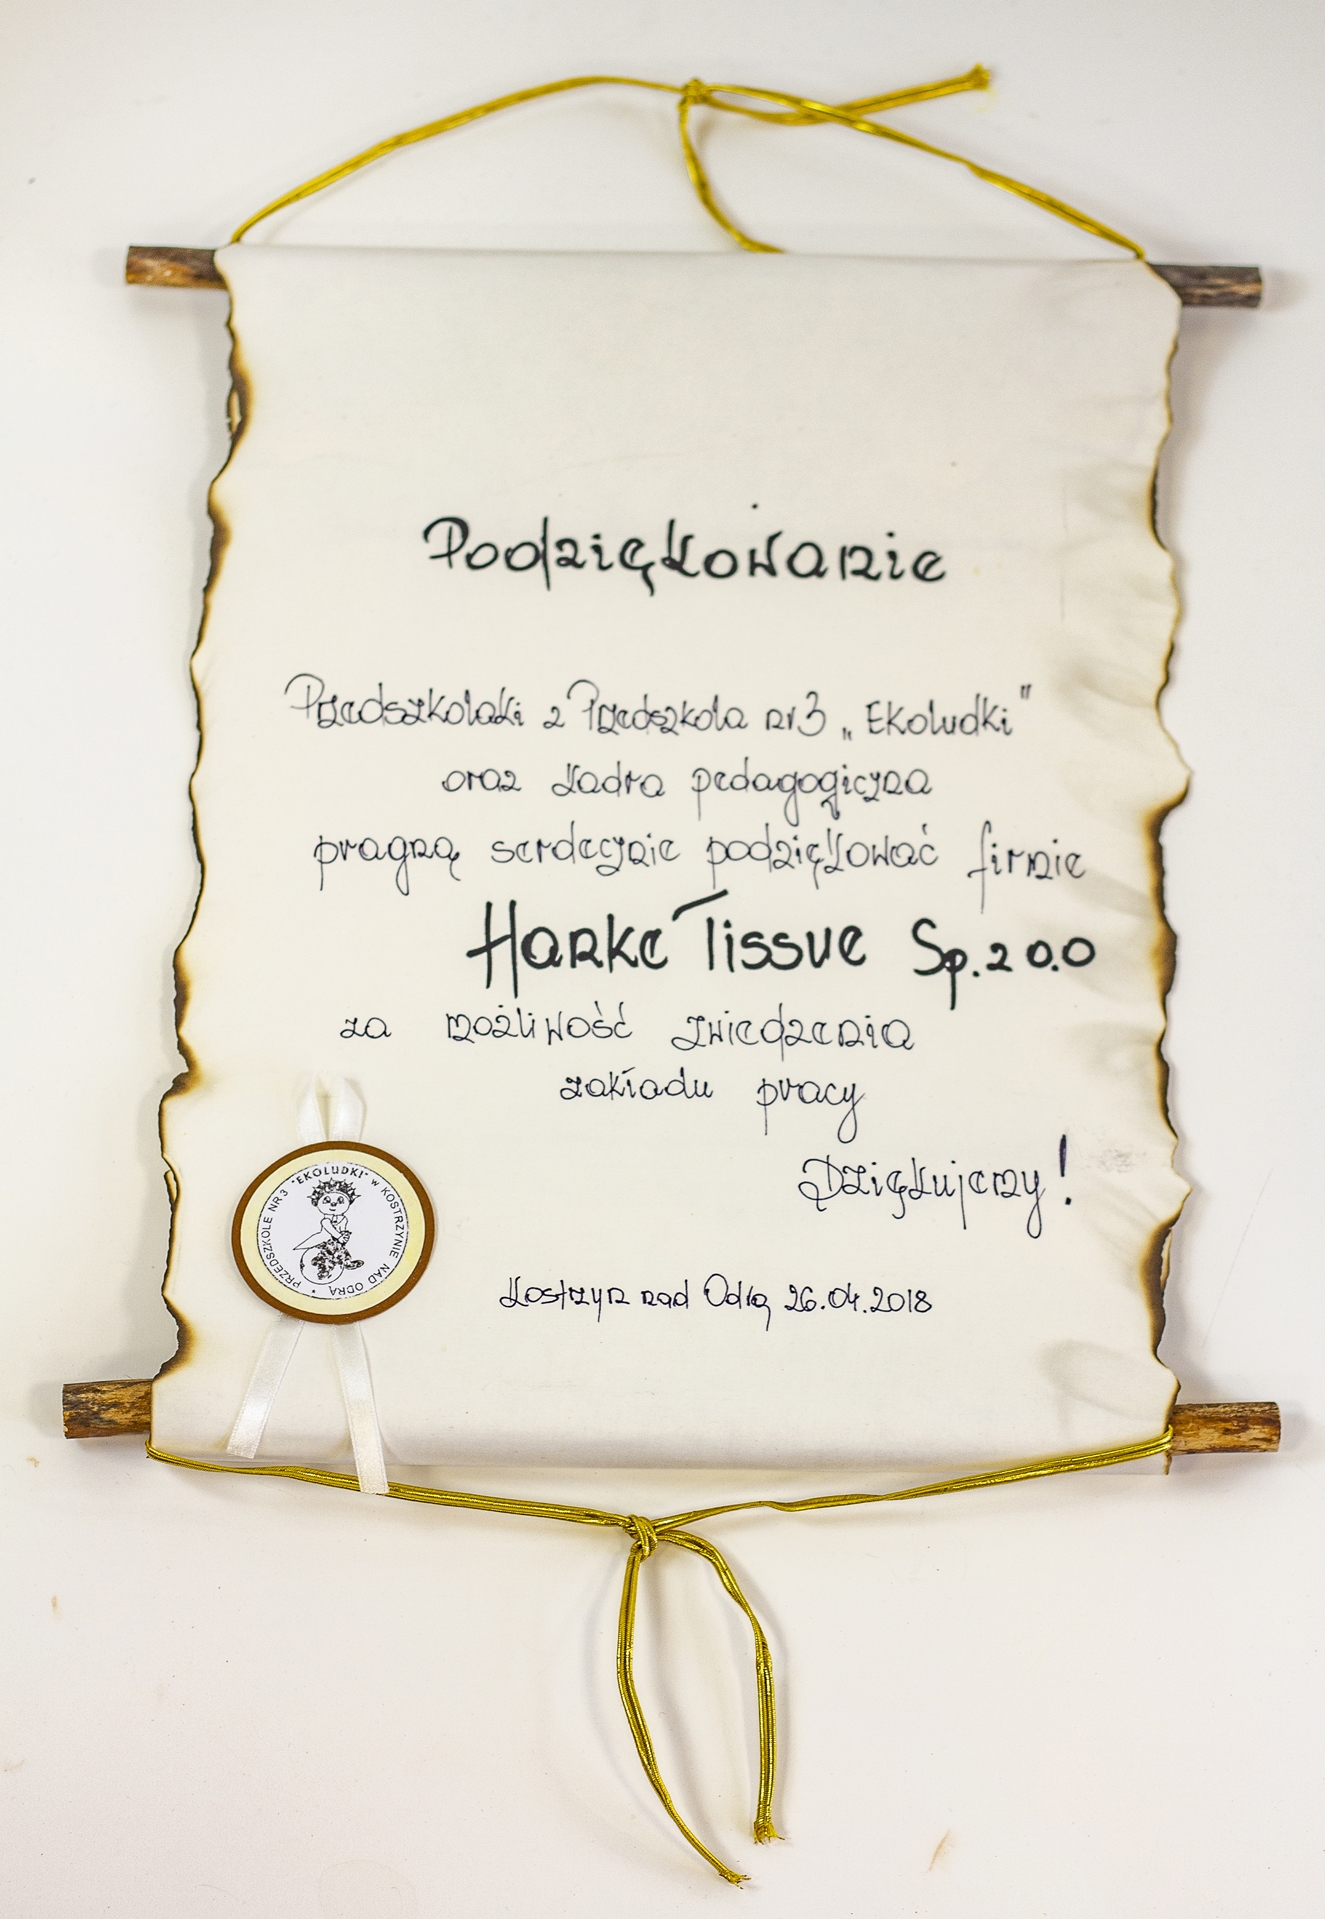 Podziękowanie
Przedszkolaki z Przedszkola nr 3 „Ekoludki"
oraz kadra pedagogiczna
pragną serdecznie podziękować firmie
Hanke Tissue Sp. z o.o
za możliwość zwiedzenia
zakładu pracy
Dziękujemy!
PRZEDSZKOLE NR 3 "EKOLUDKI" W KOSTRZYNIE NAD ODRĄ
Kostrzyn nad Odrą 26.04.2018